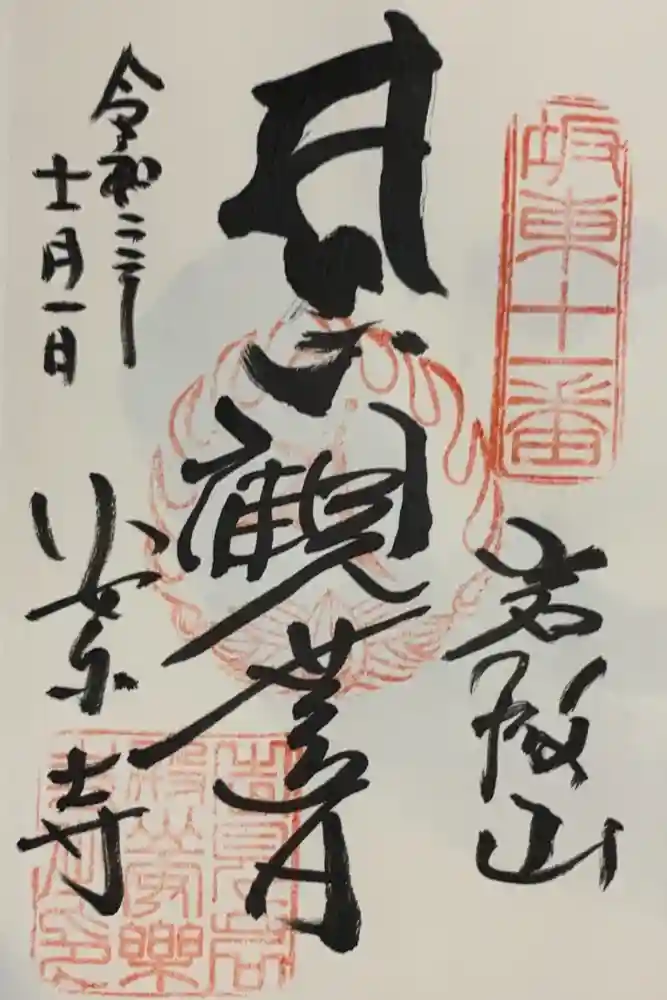 坂東十一番
岩殿山
観世音
安楽寺
令和二年
十一月一日
吉見岩
殿山安樂
寺之印